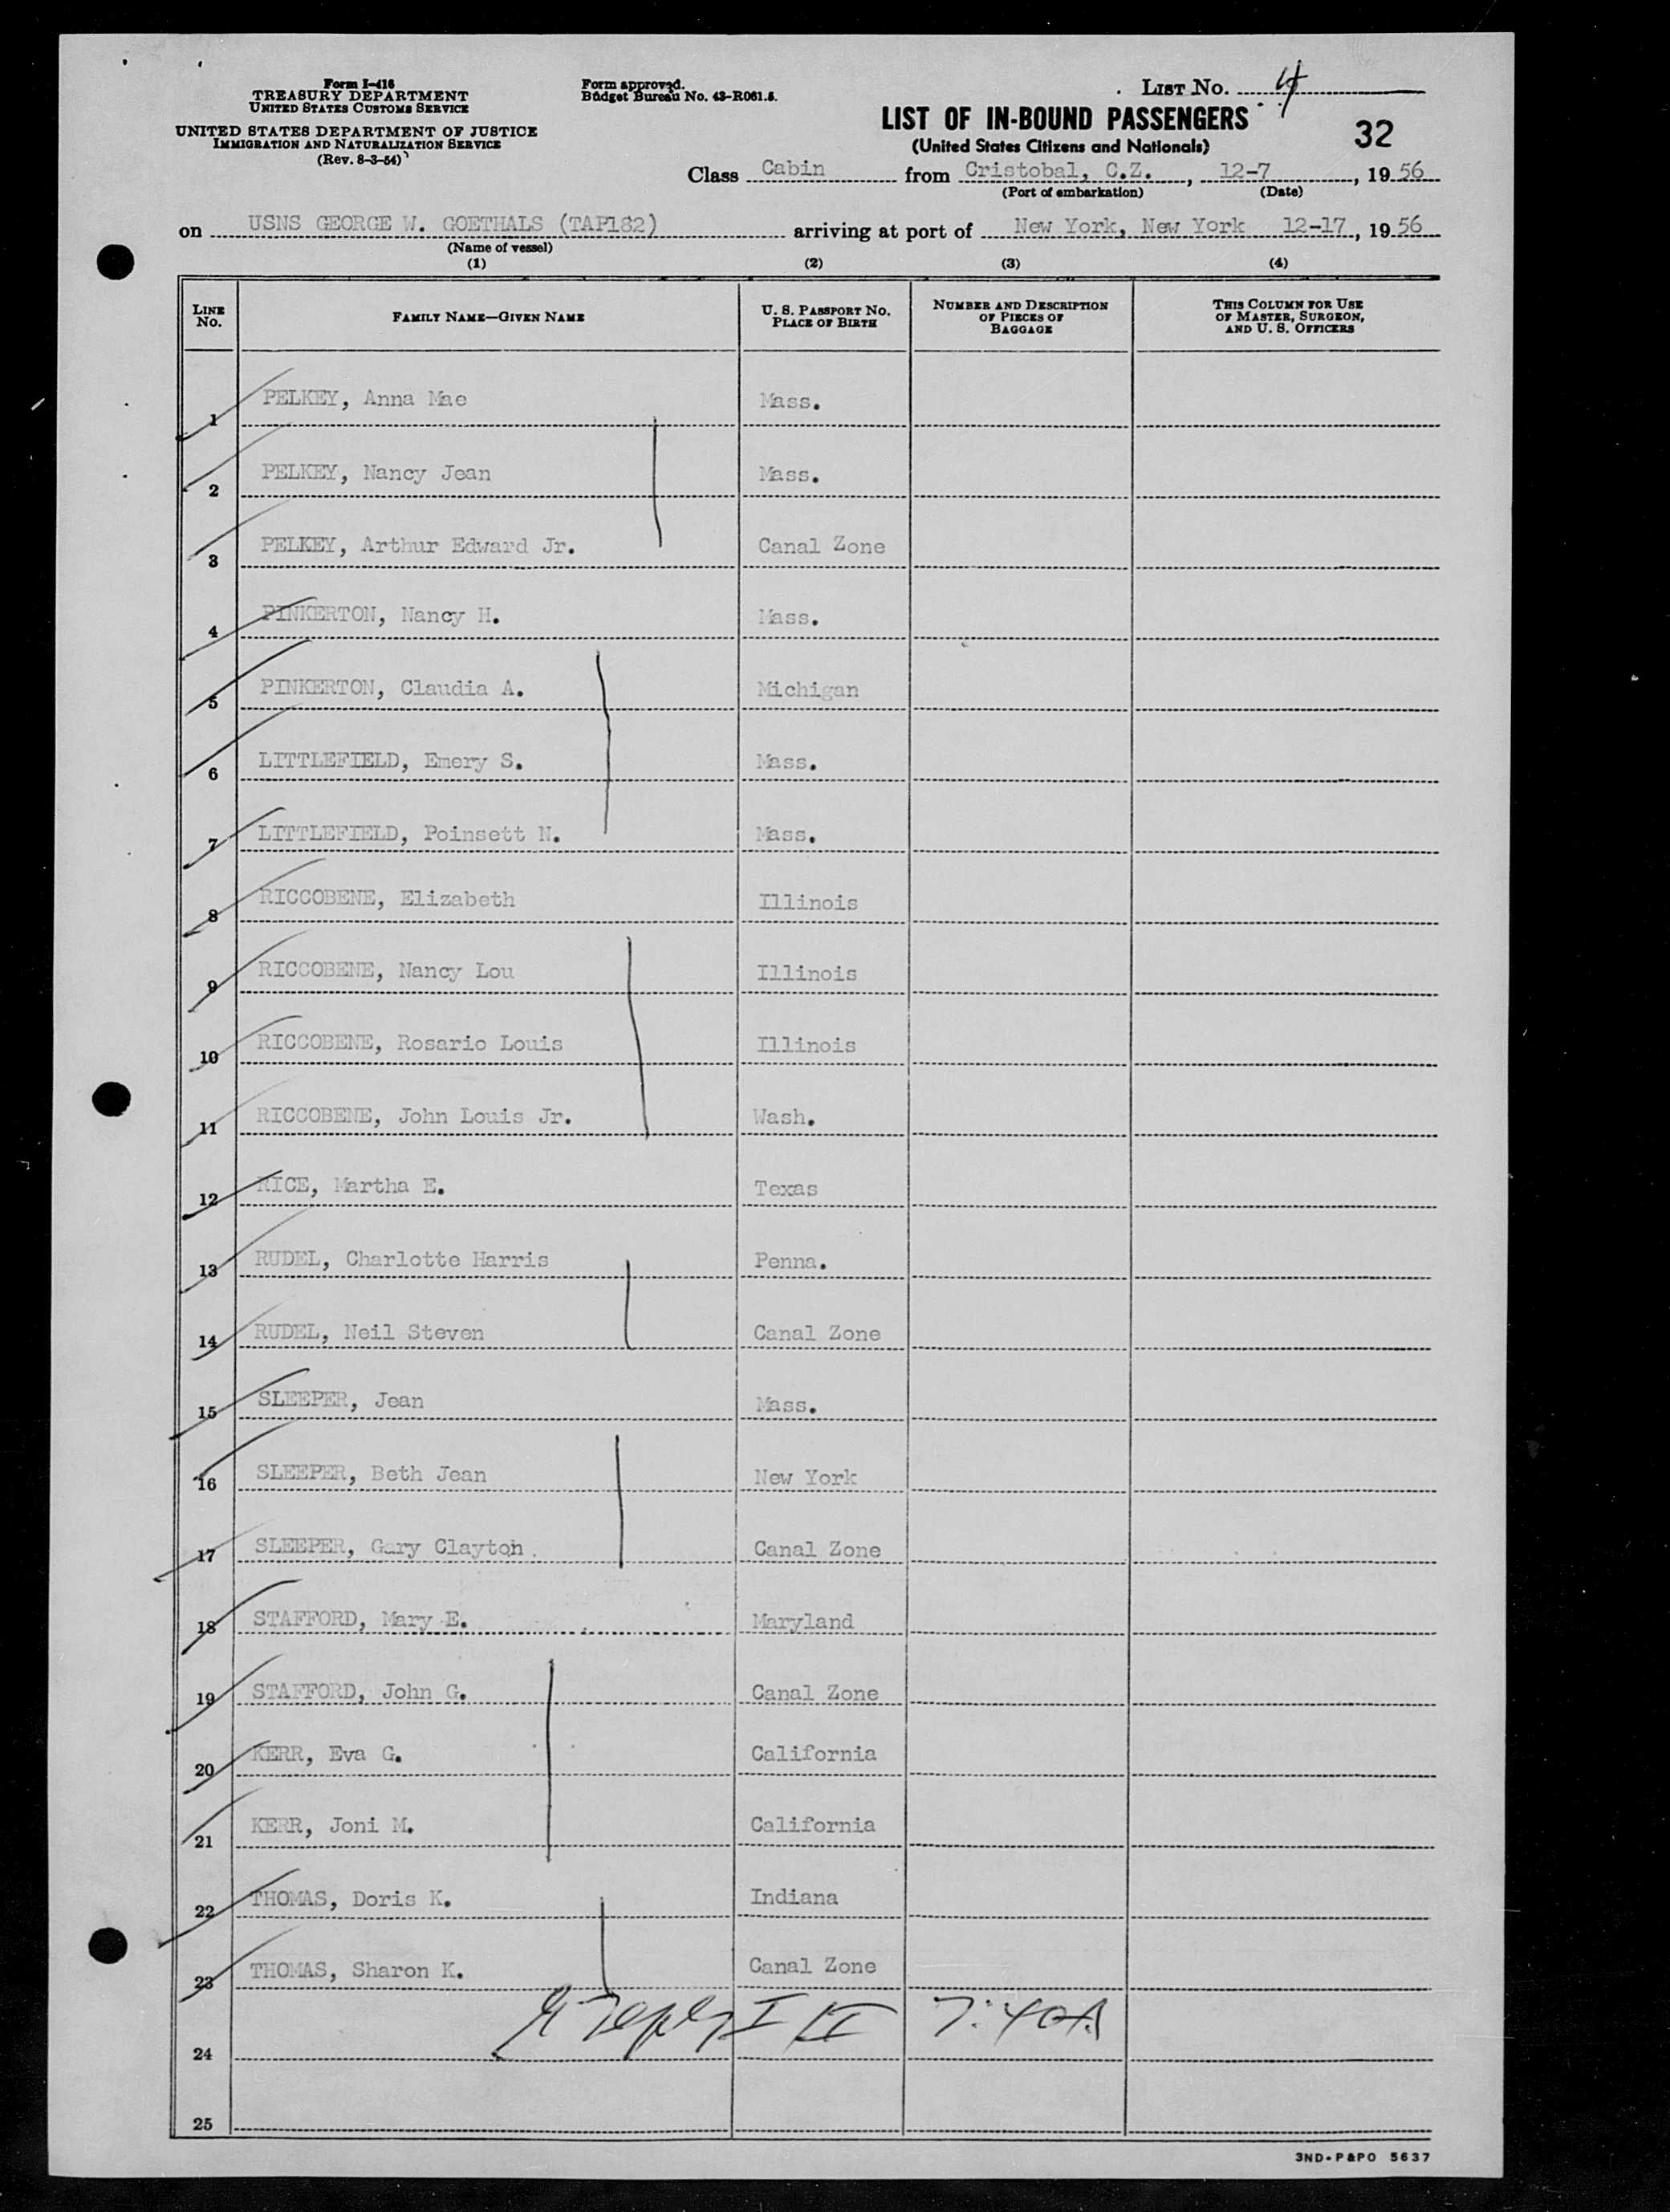 Form I-416
TREASURY DEPARTMENT
UNITED STATES CUSTOMS SERVICE
UNITED STATES DEPARTMENT OF JUSTICE
IMMIGRATION AND NATURALIZATION SERVICE
(Rev. 8-3-54)
Form approved.
Budget Bureau No. 43-R061.5.
LIST NO. 4
LIST OF IN-BOUND PASSENGERS
(United States Citizens and Nationals)
32
Class Cabin from Cristobal, C.Z., 12-7, 1956
(Port of embarkation) (Date)
on USNS GEORGE W. GOETHALS (TAP182) arriving at port of New York, New York 12-17, 1956
(Name of vessel)
(1) (2) (3) (4)
LINE NO. FAMILY NAME—GIVEN NAME U. S. PASSPORT NO. PLACE OF BIRTH NUMBER AND DESCRIPTION OF PIECES OF BAGGAGE THIS COLUMN FOR USE OF MASTER, SURGEON, AND U. S. OFFICERS
1 PELKEY, Anna Mae Mass.
2 PELKEY, Nancy Jean Mass.
3 PELKEY, Arthur Edward Jr. Canal Zone
4 PINKERTON, Nancy H. Mass.
5 PINKERTON, Claudia A. Michigan
6 LITTLEFIELD, Emery S. Mass.
7 LITTLEFIELD, Poinsett N. Mass.
8 RICCOBENE, Elizabeth Illinois
9 RICCOBENE, Nancy Lou Illinois
10 RICCOBENE, Rosario Louis Illinois
11 RICCOBENE, John Louis Jr. Wash.
12 RICE, Martha E. Texas
13 RUDEL, Charlotte Harris Penna.
14 RUDEL, Neil Steven Canal Zone
15 SLEEPER, Jean Mass.
16 SLEEPER, Beth Jean New York
17 SLEEPER, Gary Clayton Canal Zone
18 STAFFORD, Mary E. Maryland
19 STAFFORD, John G. Canal Zone
20 KERR, Eva G. California
21 KERR, Joni M. California
22 THOMAS, Doris K. Indiana
23 THOMAS, Sharon K. Canal Zone
24 7:40A
25
3ND-P&PO 5637